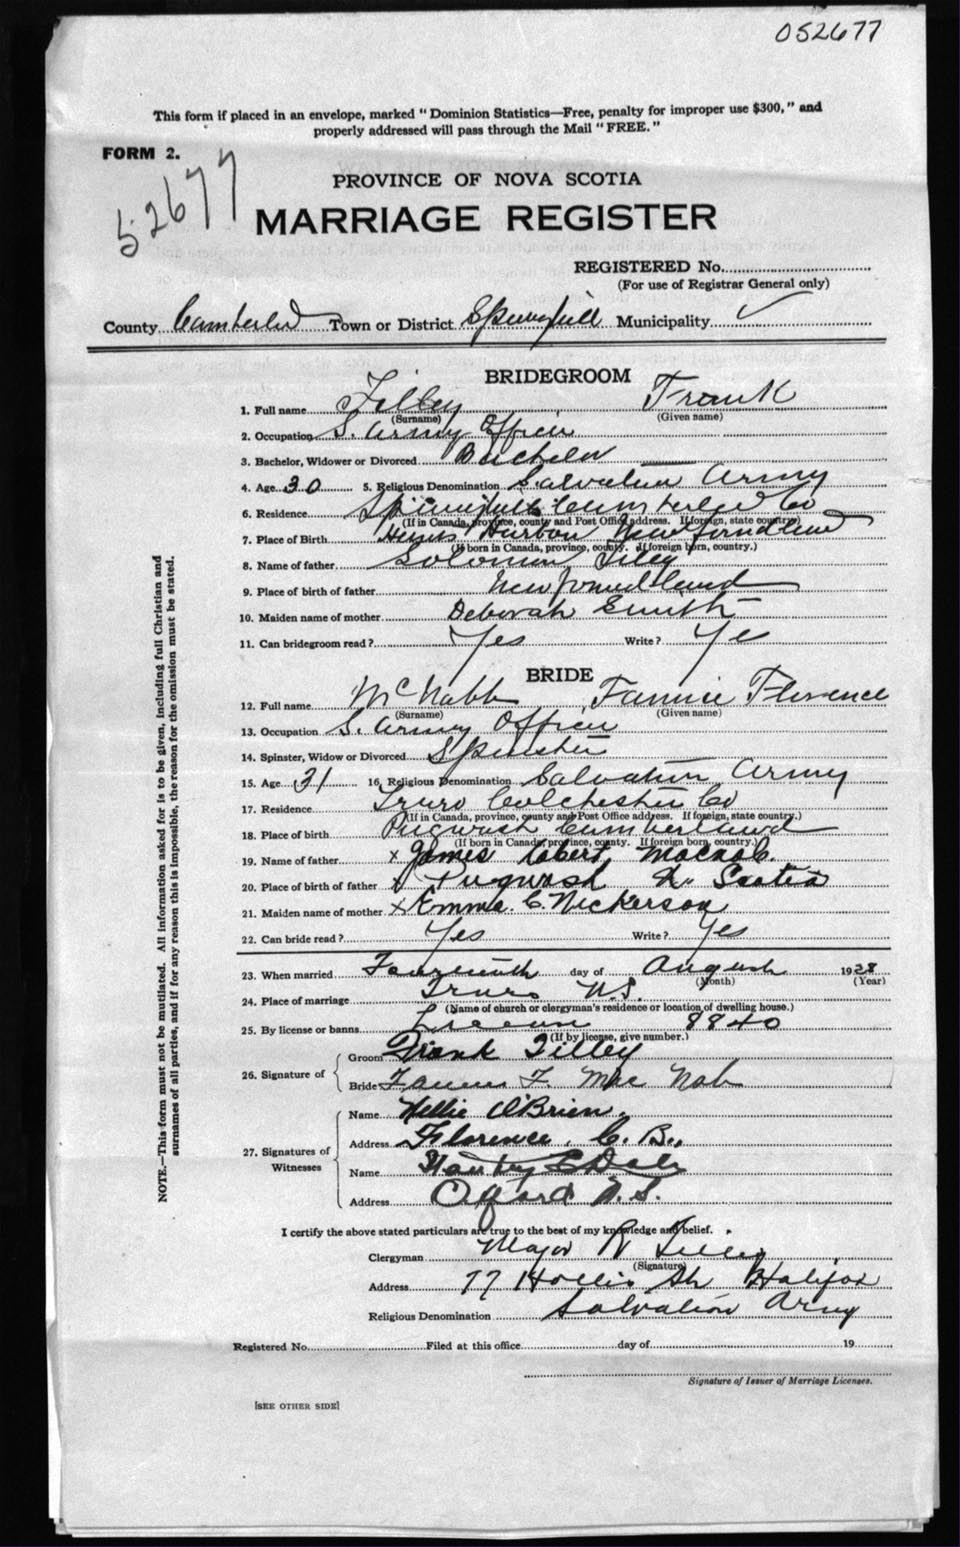 052677
This form if placed in an envelope, marked "Dominion Statistics—Free, penalty for improper use $300," and
properly addressed will pass through the Mail "FREE."
FORM 2.
52677
PROVINCE OF NOVA SCOTIA
MARRIAGE REGISTER
REGISTERED No.
(For use of Registrar General only)
County Cumberland Town or District Springhill Municipality ✓
BRIDEGROOM
1. Full name Tilley Frank
(Surname) (Given name)
2. Occupation S. Army Officer
3. Bachelor, Widower or Divorced Bachelor
4. Age 30 5. Religious Denomination Salvation Army
6. Residence Springhill Cumberland Co
(If in Canada, province, county and Post Office address. If foreign, state country)
7. Place of Birth Harbor Newfoundland
(If born in Canada, province, county. If foreign born, country.)
8. Name of father Solomon Tilley
9. Place of birth of father Newfoundland
10. Maiden name of mother Deborah Smith
11. Can bridegroom read? Yes Write? Yes
BRIDE
12. Full name McNabb Fannie Florence
(Surname) (Given name)
13. Occupation S. Army Officer
14. Spinster, Widow or Divorced Spinster
15. Age 31 16. Religious Denomination Salvation Army
17. Residence Truro Colchester Co
(If in Canada, province, county and Post Office address. If foreign, state country.)
18. Place of birth Pugwash Cumberland
(If born in Canada, province, county. If foreign born, country.)
19. Name of father x James Robert Macnab.
20. Place of birth of father x Pugwash N. Scotia
21. Maiden name of mother x Emma C. Nickerson
22. Can bride read? Yes Write? Yes
23. When married day of August 1928
(Month) (Year)
24. Place of marriage Truro N.S.
(Name of church or clergyman's residence or location of dwelling house.)
25. By license or banns License 8840
(If by license, give number.)
26. Signature of
Groom Frank Tilley
Bride Fannie F. Mac Nab
27. Signatures of Witnesses
Name Nellie O'Brien.
Address Florence. C. B.,
Name
Address Oxford N.S.
I certify the above stated particulars are true to the best of my knowledge and belief.
Clergyman Major R Tilley
(Signature)
Address 77 Hollis St Halifax
Religious Denomination Salvation Army
Registered No. Filed at this office day of 19
Signature of Issuer of Marriage Licenses.
[SEE OTHER SIDE]
NOTE.—This form must not be mutilated. All information asked for is to be given, including full Christian and
surnames of all parties, and if for any reason this is impossible, the reason for the omission must be stated.